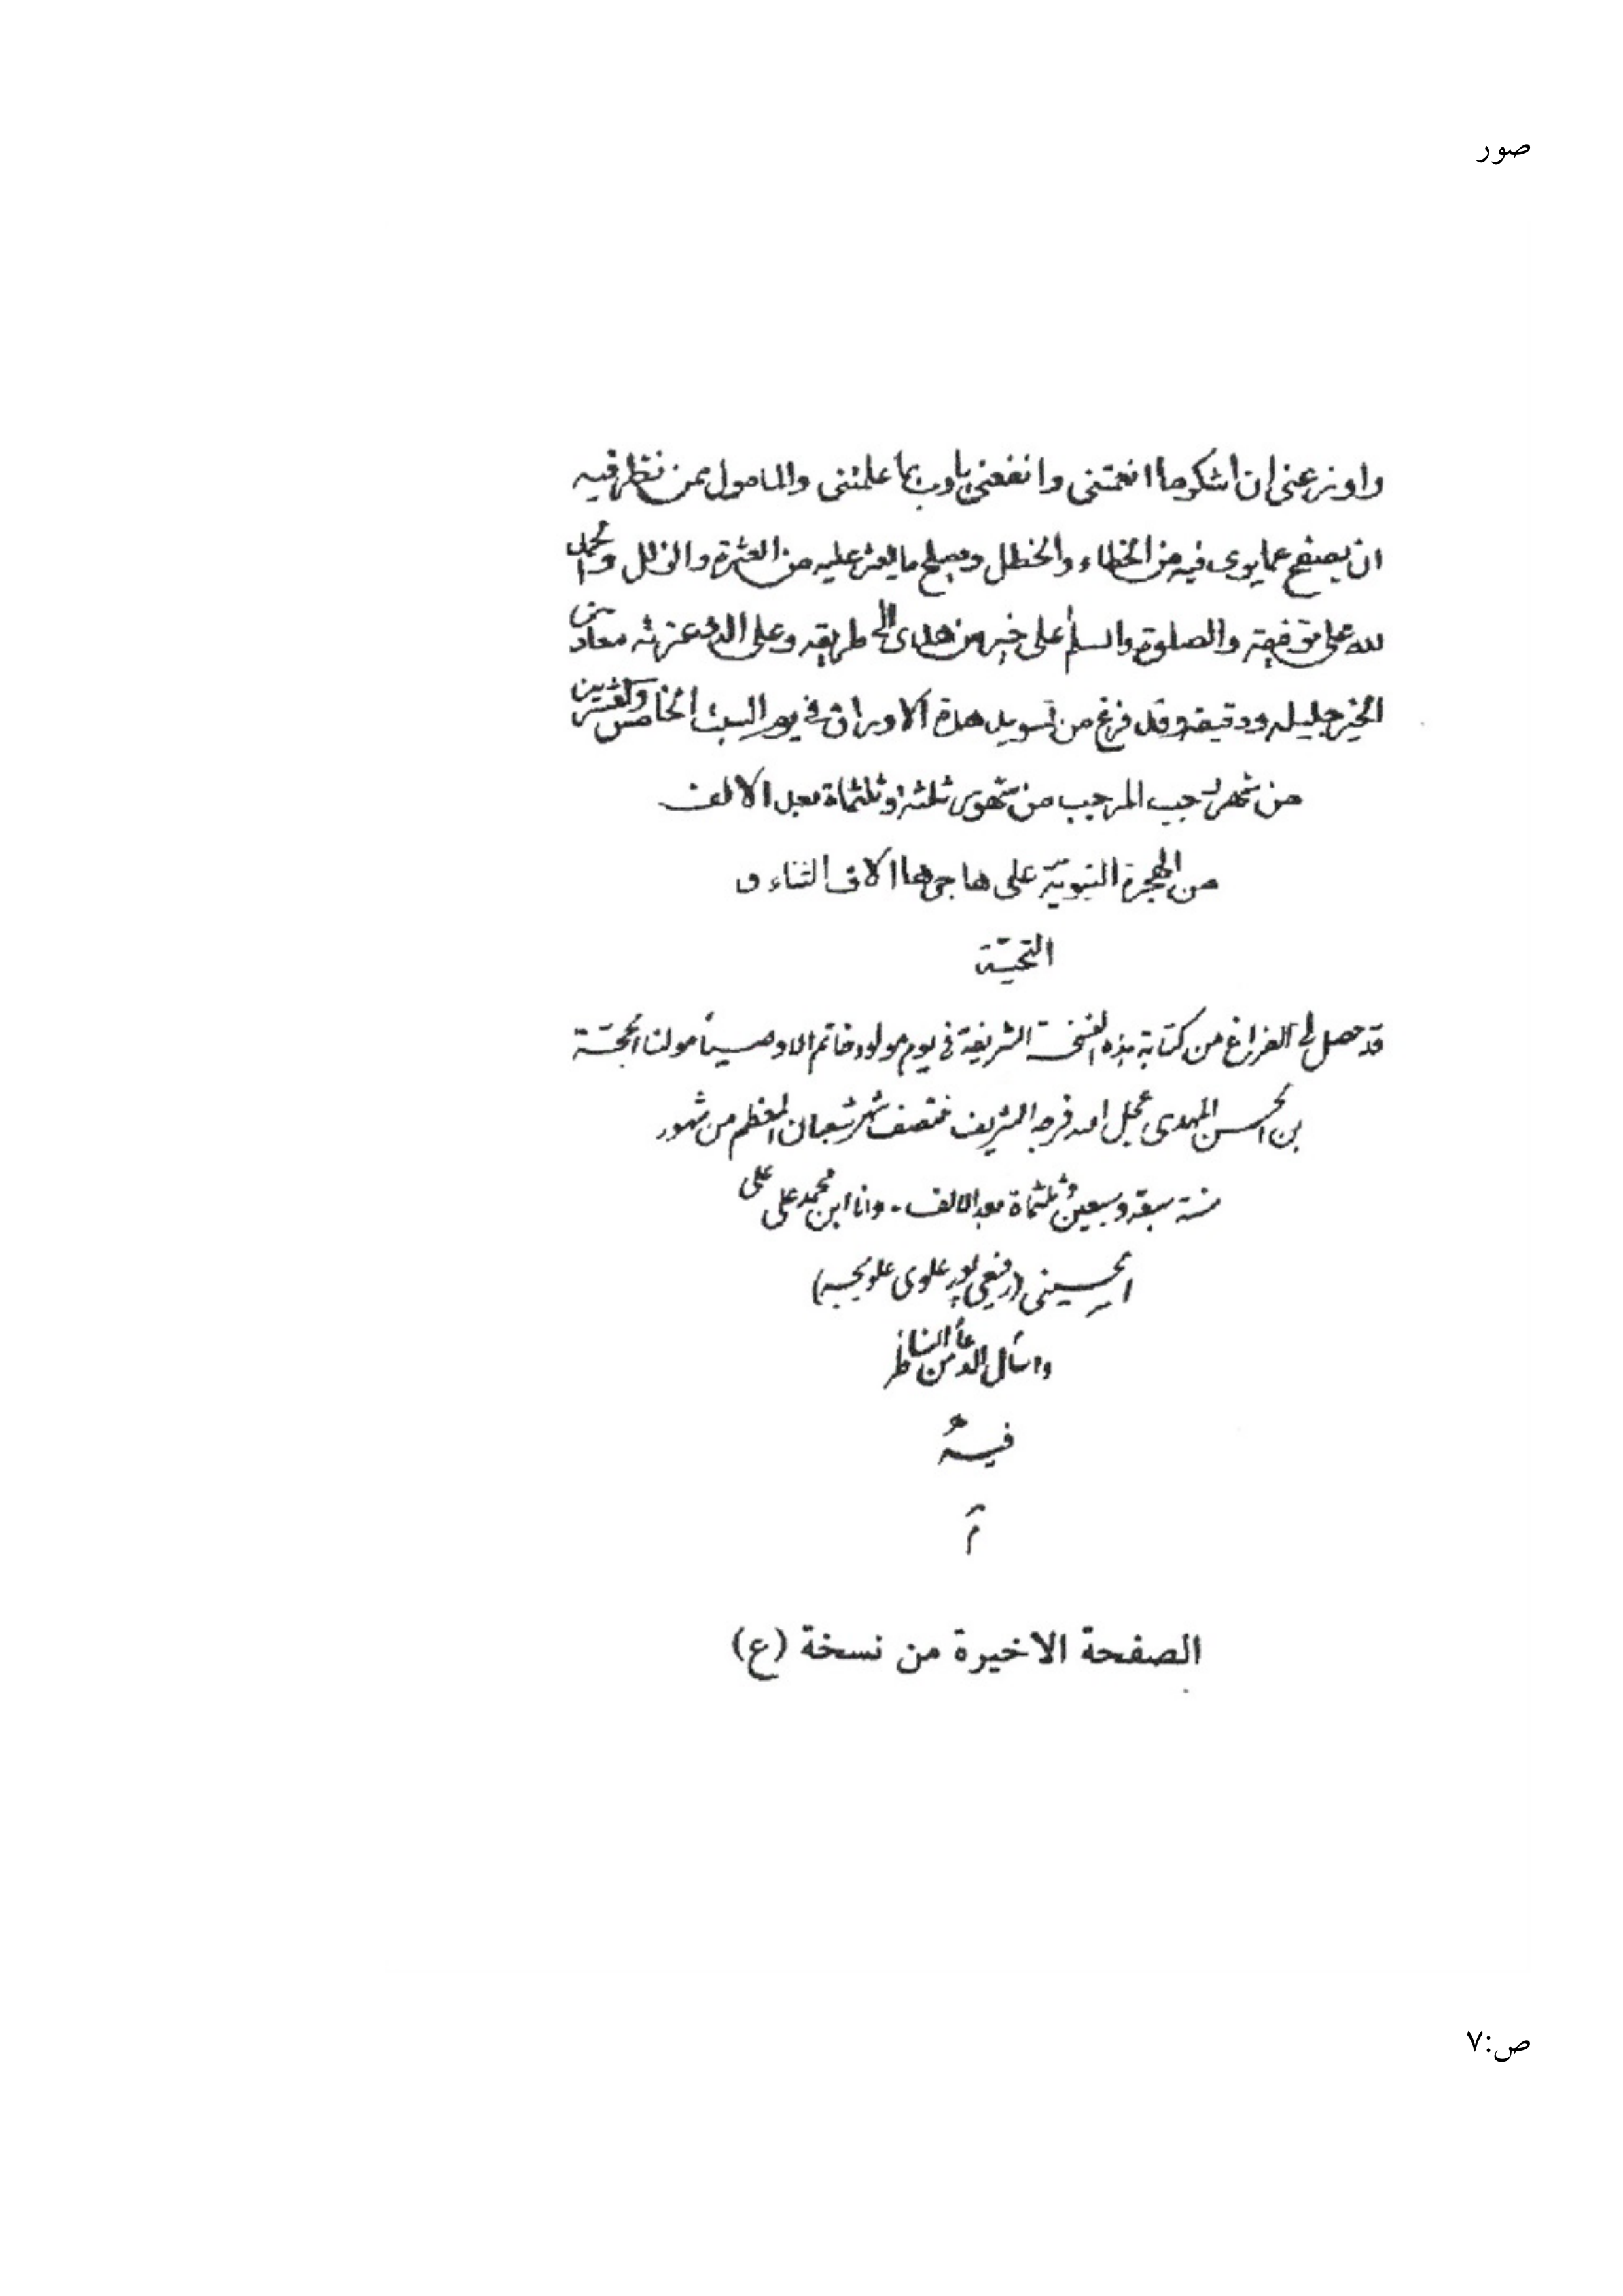 صور
واوزعنی ان اشکر ما انعمتنی وانفعنی یا رب بما علمتنی والمامول ممن نظر فیه
ان یصفح عما یری فیه من الخطاء والخطل ویصلح ما یعثر علیه من العثرة والزلل والحمد
لله علی توفیقه والصلوة والسلم علی خیر من هدی الی طریقه وعلی اله وعترته معادن
الخیر جلیله ودقیقه وقد فرغ من تسوید هذه الاوراق فی یوم السبت الخامس والعشرین
من شهر رجب المرجب من شهور ثلثة وثلثماة بعد الالف
من الهجرة النبویة علی هاجرها الاف الثناء و
التحیّة
قد حصل لی الفراغ من کتابة هذه النسخة الشریفة فی یوم مولود خاتم الاوصیاء مولنا الحجّة
بن الحسن المهدی عجل الله فرجه الشریف منتصف شهر شعبان المعظم من شهور
سنة سبعة وسبعین وثلثماة بعد الالف - وانا ابن محمد علی علی
الحسینی (رفیعی پور علوی علویجه)
واسأل الدعاء من الناظر
فیه
م
الصفحة الاخیرة من نسخة (ع)
ص:٧